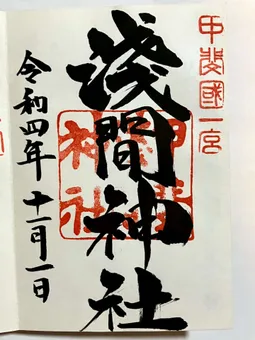 甲斐國一宮
淺間神社
令和四年 十一月一日